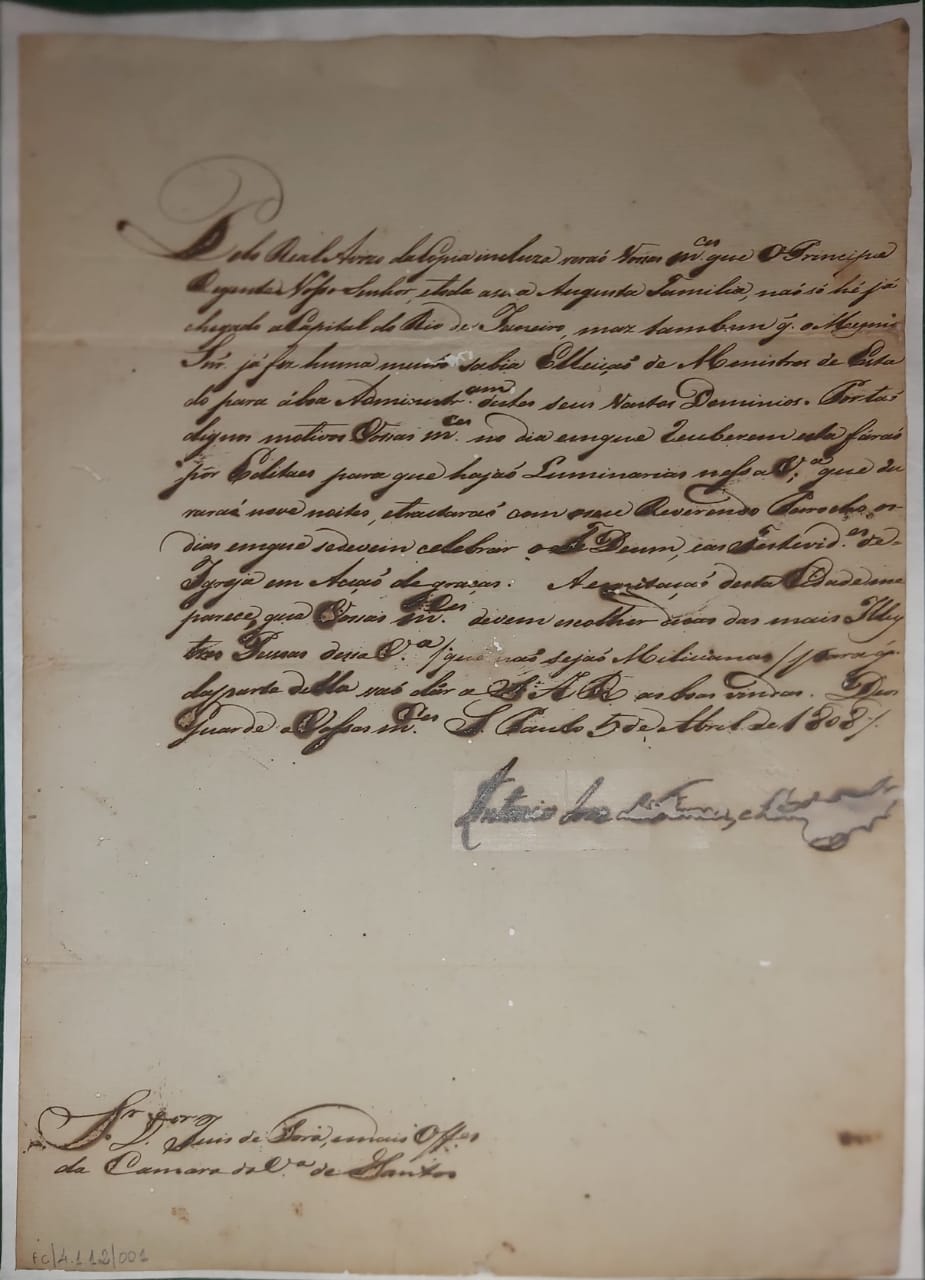 Pelo Real Avizo da Copia incluza veraõ Vossas m.ces que O Principe
Regente Nosso Senhor, etoda asua Augusta Familia, naõ só hé já
chegado a Capital do Rio de Janeiro, maz tambem q. o Mesmo
Snr. já fez huma muito sabia Elleiçaõ de Menistros de Esta
do para áboa Administr.am destes seus Vastos Dominios. Por taõ
dignos motivos Vossas m.ces no dia emque receberem esta faraõ
pôr Editaes para que hajaõ Luminarias nessa V.a que du
raraõ nove noites, etractaraõ com oseu Reverendo Parocho os
dias emque sedevem celebrar o Te Deum, eas Festevid.es de
Igreja em Acçaõ de graças. Aemitaçaõ desta Cidade me
parece, que Vossas m.ces devem escolher duas das mais Illus
tres Pessoas dessa V.a /que naõ sejaõ Milicianas/ para q.
daparte della vaõ dár a S. A. R. as boas vindas. Deos
Guarde a Vossas m.ces S. Paulo 5 de Abril de 1808/.
Antonio Joze da Franca e Horta
Snr.es D.or Juis de Fora, emais Off.es
da Camara da V.a de Santos
FC/4.112/001